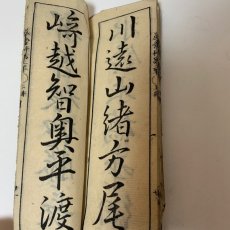 川遠山緒方尾
崎越智奥平渡